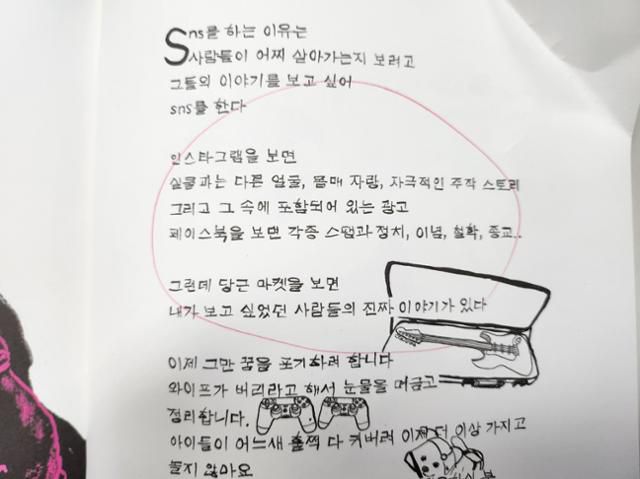 Sns를 하는 이유는
사람들이 어찌 살아가는지 보려고
그들의 이야기를 보고 싶어
sns를 한다
인스타그램을 보면
실물과는 다른 얼굴, 몸매 자랑, 자극적인 주작 스토리
그리고 그 속에 포함되어 있는 광고
페이스북을 보면 각종 스팸과 정치, 이념, 철학, 종교..
그런데 당근 마켓을 보면
내가 보고 싶었던 사람들의 진짜 이야기가 있다
이제 그만 꿈을 포기하려 합니다
와이프가 버리라고 해서 눈물을 머금고
정리합니다.
아이들이 어느새 훌쩍 다 커버려 이제 더 이상 가지고
놀지 않아요